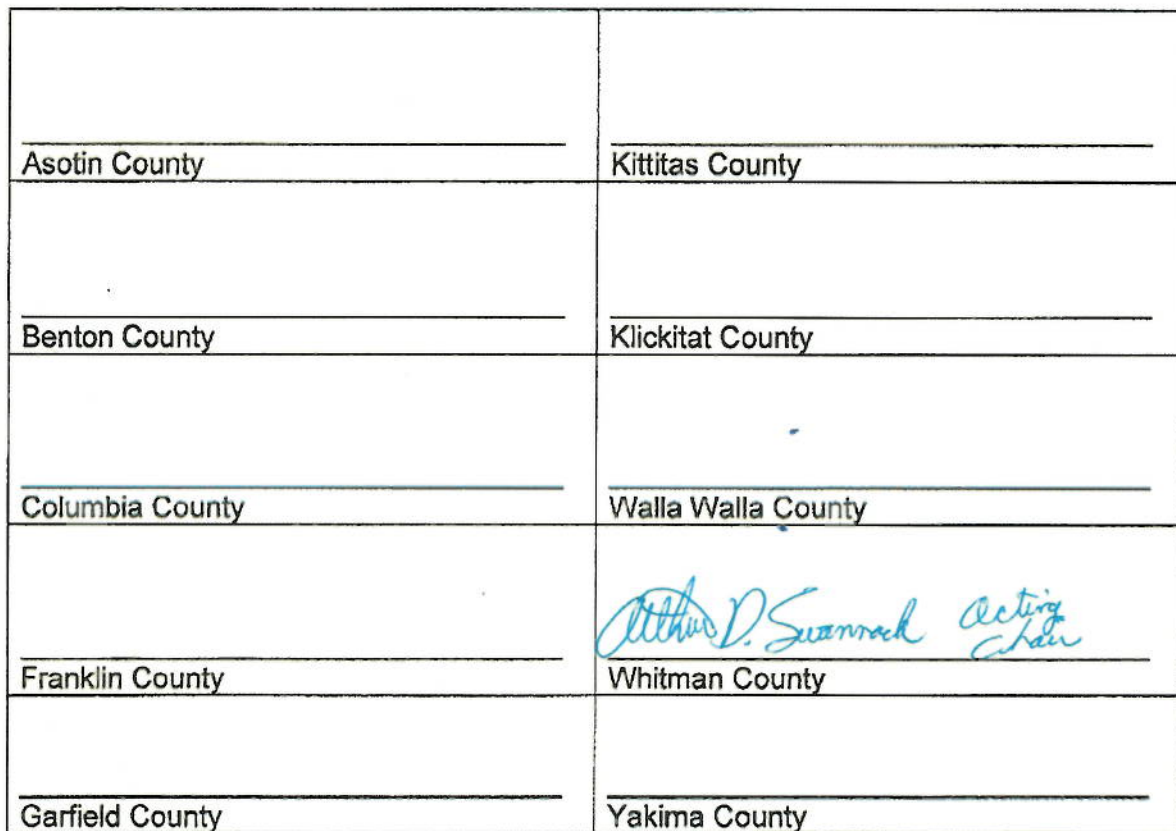 Asotin County
Kittitas County
Benton County
Klickitat County
Columbia County
Walla Walla County
Arthur D. Swannack acting
chair
Franklin County
Whitman County
Garfield County
Yakima County